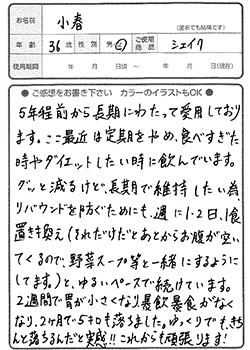 お名前 小春 (匿名でも結構です)
年齢 36歳 性別 男・女 ご使用商品 シェイク
使用期間 年 月 日頃 ～ 年 月 日(現在)
●ご感想をお書き下さい カラーのイラストもOK●
5年程前から長期にわたって愛用しており
ます。ここ最近は定期をやめ、食べすぎた
時やダイエットしたい時に飲んでいます。
グッと減るけど、長期で維持したい為、
リバウンドを防ぐためにも、週に1・2日、1食
置き換え(それだけだとあとからお腹が空い
てくるので、野菜スープ等と一緒にするように
してます。)と、ゆるいペースで続けています。
2週間で胃が小さくなり暴飲暴食がなく
なり、2ヶ月で5キロも落ちました。ゆっくりでも、きち
んと落ちるんだと実感!!これからも頑張ります!